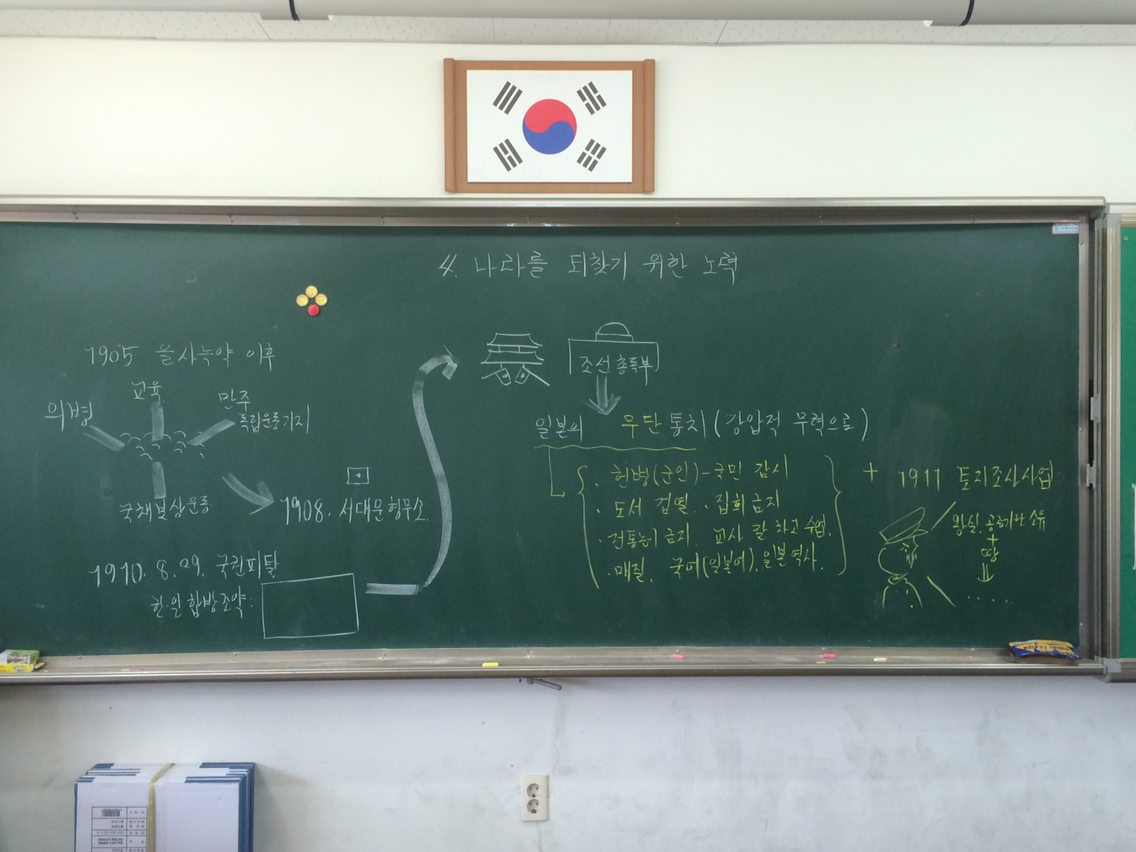 4. 나라를 되찾기 위한 노력
1905 을사늑약 이후
의병
교육
민주
독립운동기지
국채보상운동
1908. 서대문형무소.
1910. 8. 29. 국권피탈
한·일 합방조약.
조선총독부
일본의 무단통치(강압적 무력으로)
· 헌병(군인)-국민 감시
· 도서 검열. · 집회금지
· 전통놀이 금지. 교사 칼 차고 수업.
· 매질. 국어(일본어), 일본 역사.
+ 1911 토지조사사업
왕실, 공공기관 소유
+
땅
. . . . .